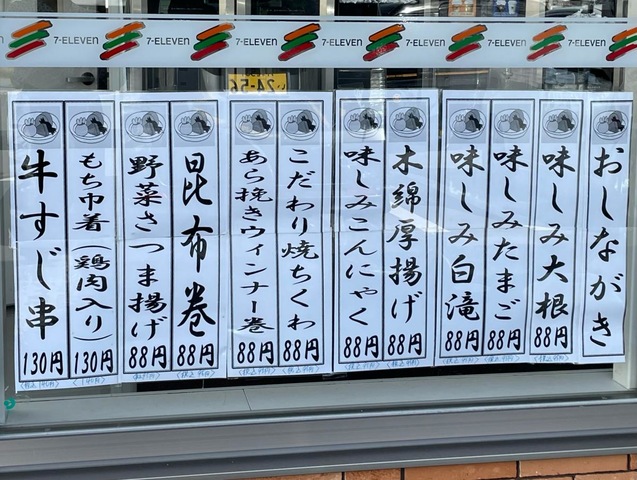 7-ELEVEN 7-ELEVEN 7-ELEVEN 7-ELEVEN 7-ELEVEN 7-ELEVEN 7-ELEVEN
い24-56
おしながき
味しみ大根 88円
味しみたまご 88円
味しみ白滝 88円
木綿厚揚げ 88円
味しみこんにゃく 88円
こだわり焼ちくわ 88円
あら挽きウィンナー巻 88円
昆布巻 88円
野菜さつま揚げ 88円
もち巾着(鶏肉入り) 130円
牛すじ串 130円